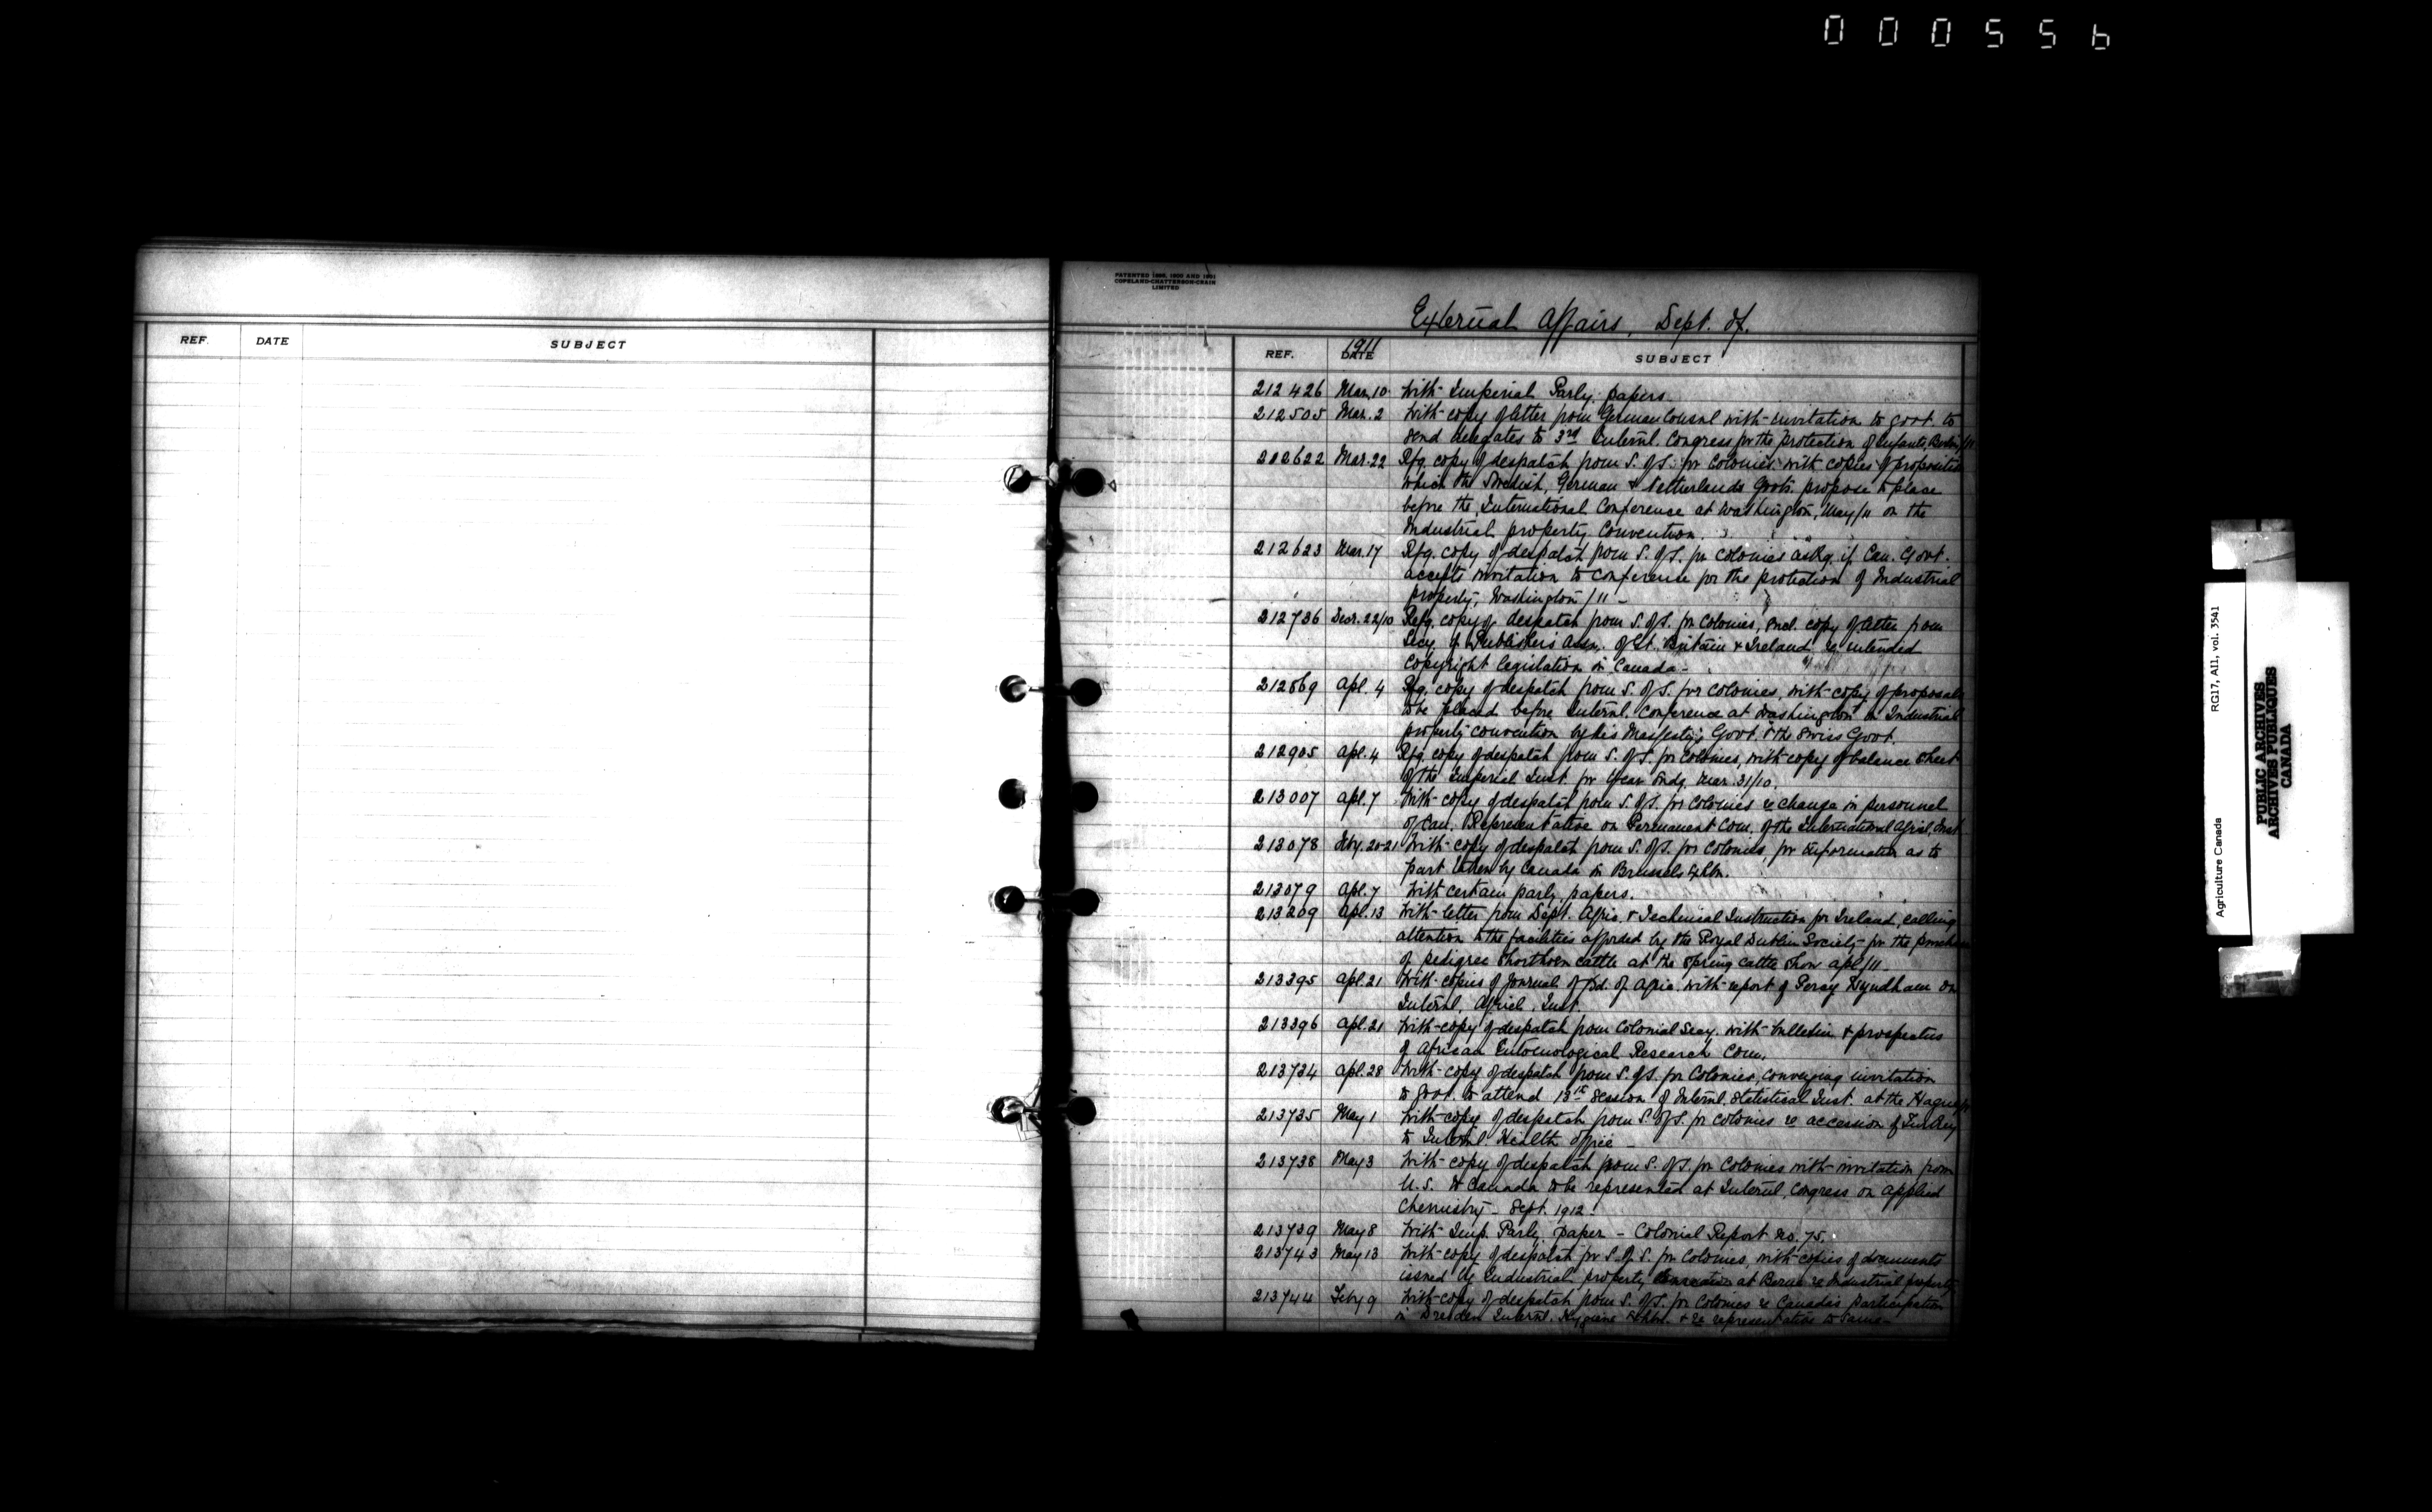 000556
REF. DATE SUBJECT
PATENTED 1895, 1900 AND 1901
COPELAND-CHATTERSON-CRAIN
LIMITED
External Affairs, Dept. of.
1911
REF. DATE SUBJECT
212426 Mar. 10 With Imperial Parly. papers
212505 Mar. 2 With copy of letter from German Consul with invitation to govt. to
send delegates to 3rd Internl. Congress for the Protection of Infants, Berlin/11
212622 Mar. 22 Rfg. copy of despatch from S. of S. for Colonies, with copies of
which the Swedish, German & Netherlands Govts. propose to place
before the International Conference at Washington, May/11 on the
Industrial property Convention.
212623 Mar. 17 Rfg. copy of despatch from S. of S. for Colonies askg. if Can. Govt.
accepts invitation to conference for the protection of Industrial
property, Washington/11 -
212736 Decr. 22/10 Refg. copy of despatch from S. of S. for Colonies, encl. copy of letter from
Secy. of Publishers Assn. of Gt. Britain & Ireland re intended
Copyright legislation in Canada -
212869 Apl. 4 Rfg. copy of despatch from S. of S. for Colonies, with copy of proposals
to be placed before Internl. Conference at Washington on Industrial
property convention by His Majesty's Govt. & the Swiss Govt.
212905 Apl. 4 Rfg. copy of despatch from S. of S. for Colonies, with copy of balance sheet
of the Imperial Inst. for year endg. Mar. 31/10.
213007 Apl. 7 With copy of despatch from S. of S. for Colonies re change in personnel
of Can. Representative on Permanent Com. of the International Agricl. Inst.
213078 Feby. 20-21 With copy of despatch from S. of S. for Colonies, for information as to
part taken by Canada in Brussels Exhbn.
213079 Apl. 7 With certain parly. papers.
213209 Apl. 13 With letter from Dept. Agric. & Technical Instruction for Ireland, calling
attention to the facilities afforded by the Royal Dublin Society for the purchase
of pedigree Shorthorn cattle at the Spring cattle Show Apl/11 -
213395 Apl. 21 With copies of Journal of Bd. of Agric. with report of Percy Wyndham on
Internl. Agricl. Inst.
213396 Apl. 21 With copy of despatch from Colonial Secy. with bulletin & prospectus
of African Entomological Research Com.
213734 Apl. 28 With copy of despatch from S. of S. for Colonies, conveying invitation
to govt. to attend 13th Session of Internl. Statistical Inst. at the Hague
213735 May 1 With copy of despatch from S. of S. for Colonies re accession of Turkey
to Internl. Health office -
213738 May 3 With copy of despatch from S. of S. for Colonies with invitation from
U.S. to Canada to be represented at Internl. Congress on applied
Chemistry - Sept. 1912.
213739 May 8 With Imp. Parly. paper - Colonial Report No. 75.
213743 May 13 With copy of despatch fr S. of S. for Colonies, with copies of documents
issued by Industrial property at Berne re Industrial property
213744 Feby 9 With copy of despatch from S. of S. for Colonies re Canada's participation
in Dresden Internl. Hygiene Exhbn. & re representative to same -
Agriculture Canada RG17, A11, vol. 3541
PUBLIC ARCHIVES
ARCHIVES PUBLIQUES
CANADA